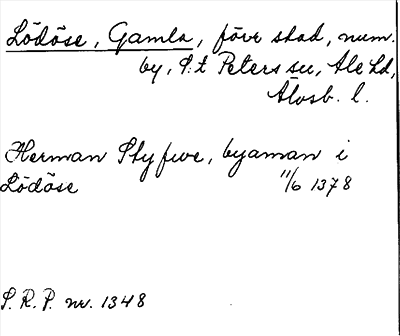 Lödöse, Gamla, förr stad, num.
by, S:t Peters sn, Ale hd,
Älvsb. l.
Herman Styfwe, byaman i
Lödöse 11/6 1378
S. R. P. nr. 1348